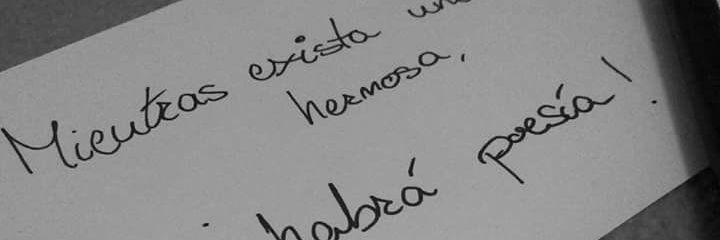 Mientras exista
hermosa,
habrá poesía!